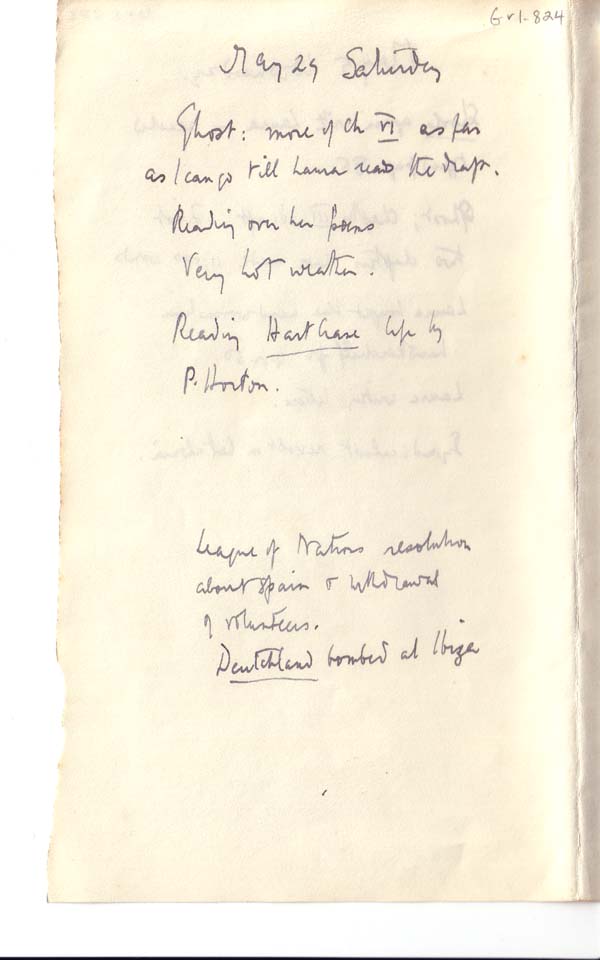 GvI-824
May 29 Saturday
Ghost: more of ch VI as far
as I can go till Laura reads the draft.
Reading over her poems
Very hot weather.
Reading Hart Crane life by
P. Horton.
League of Nations resolution
about Spain & withdrawal
of volunteers.
Deutchland bombed at Ibiza